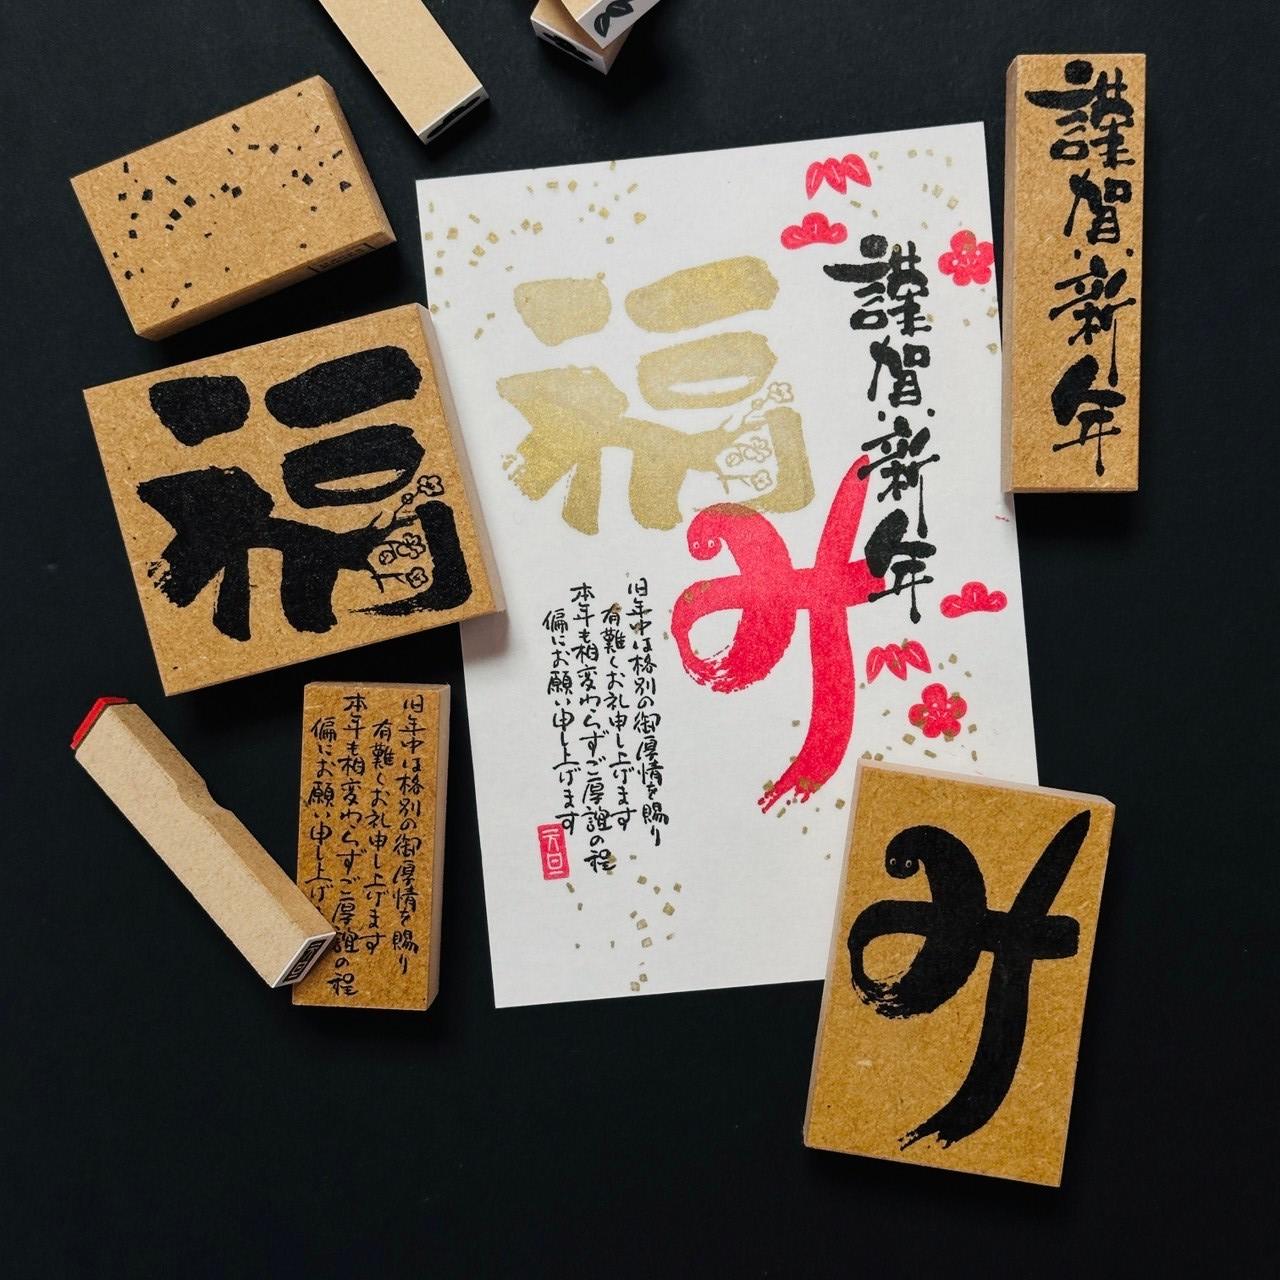 謹賀新年
福
み
旧年中は格別の御厚情を賜り
有難くお礼申し上げます
本年も相変わらずご厚誼の程
偏にお願い申し上げます
元旦
謹賀新年
福
旧年中は格別の御厚情を賜り
有難くお礼申し上げます
本年も相変わらずご厚誼の程
偏にお願い申し上げ
元旦
み